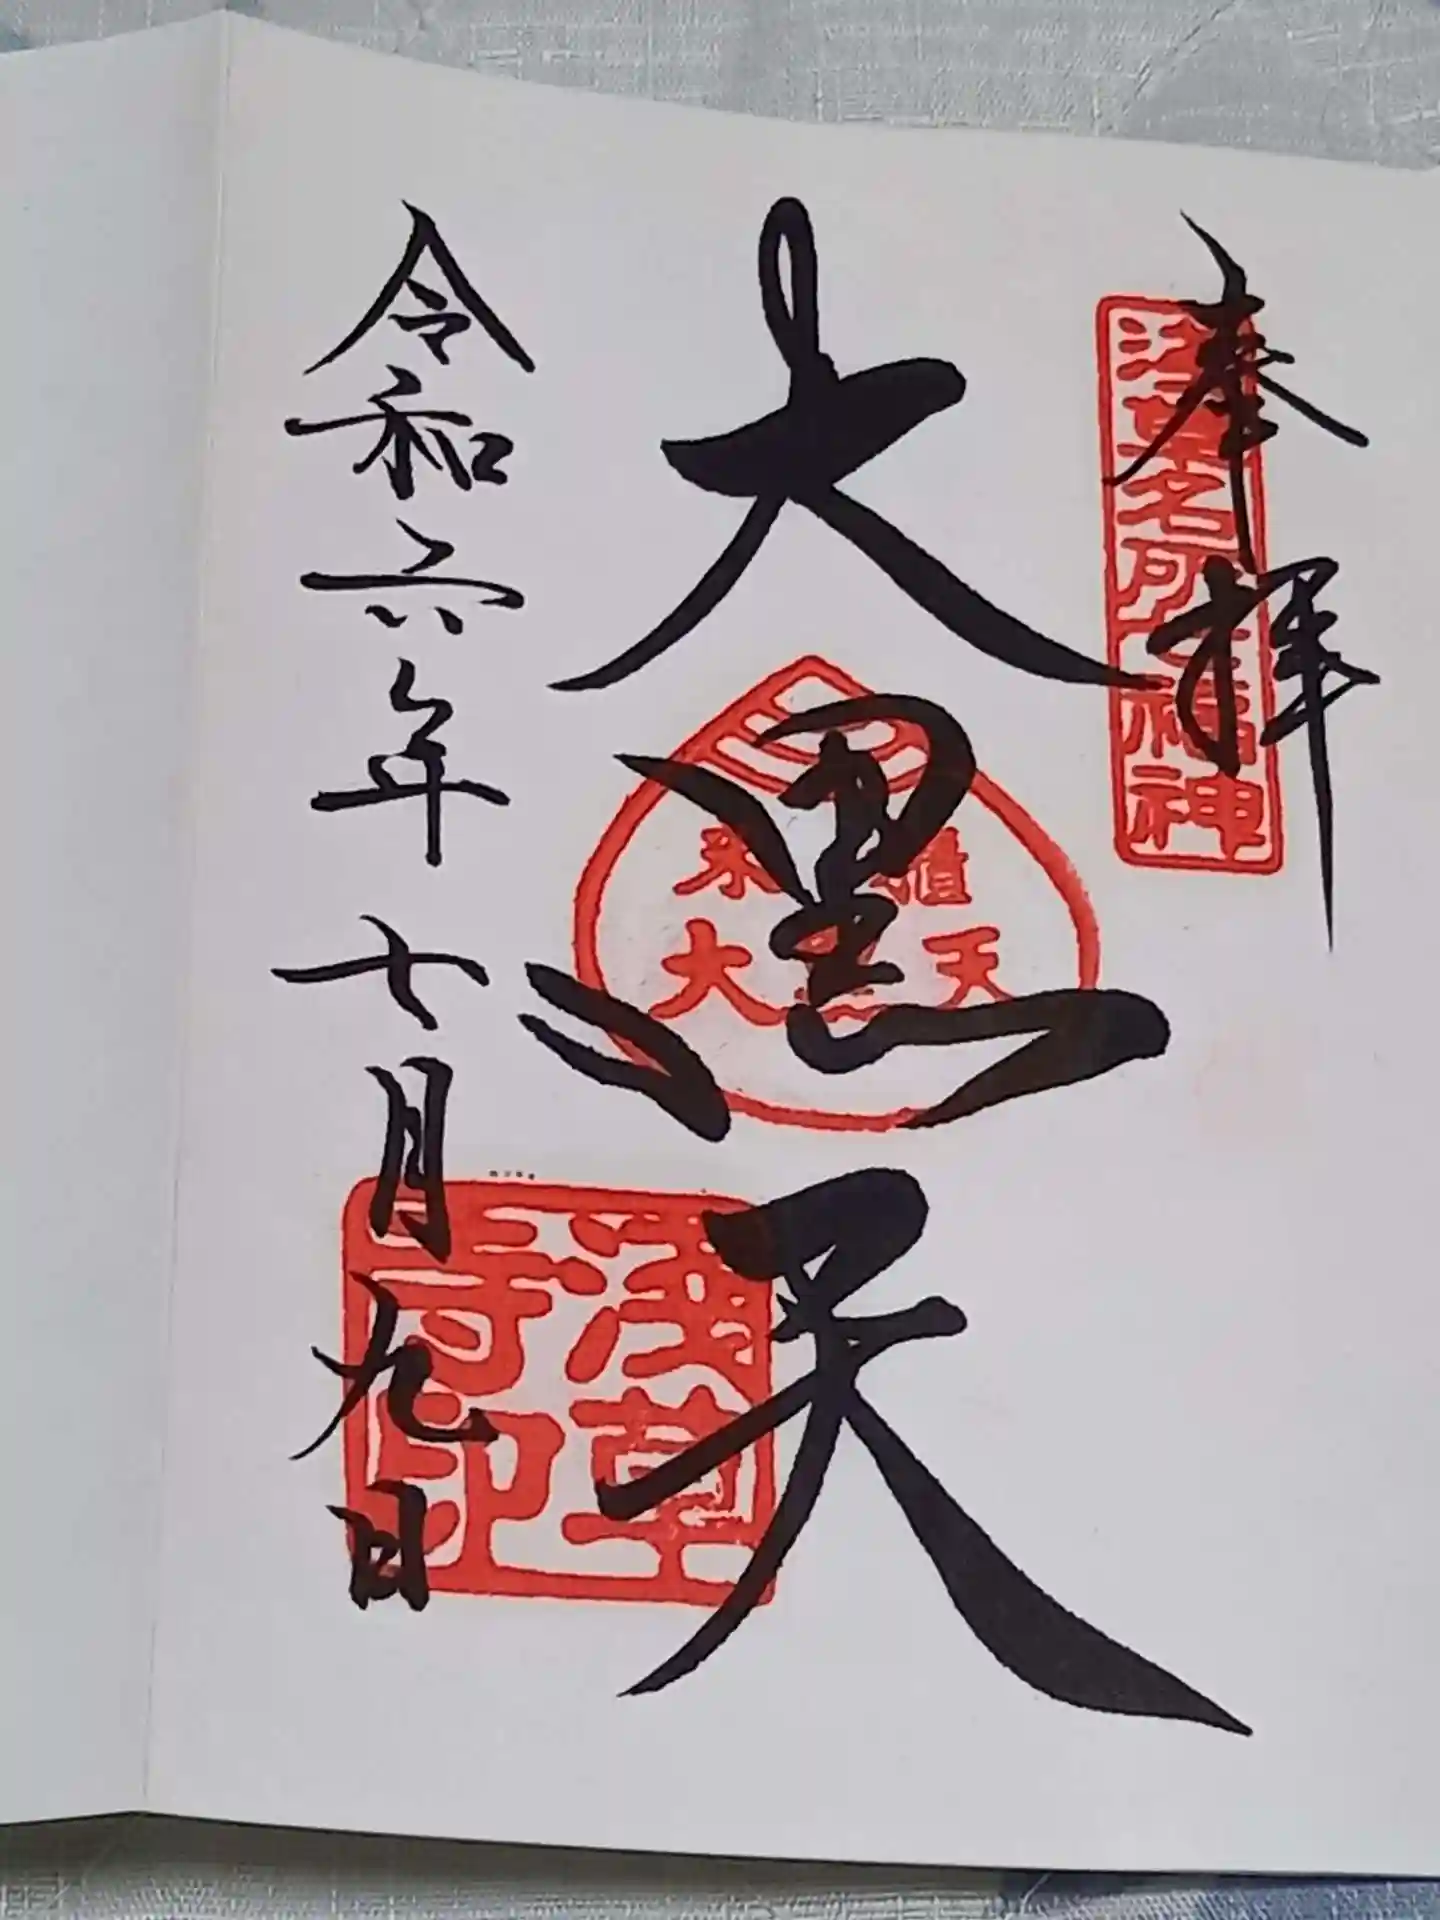 奉拝
浅草名所七福神
大黒天
米櫃
大黒天
令和六年七月九日
浅草
寺印